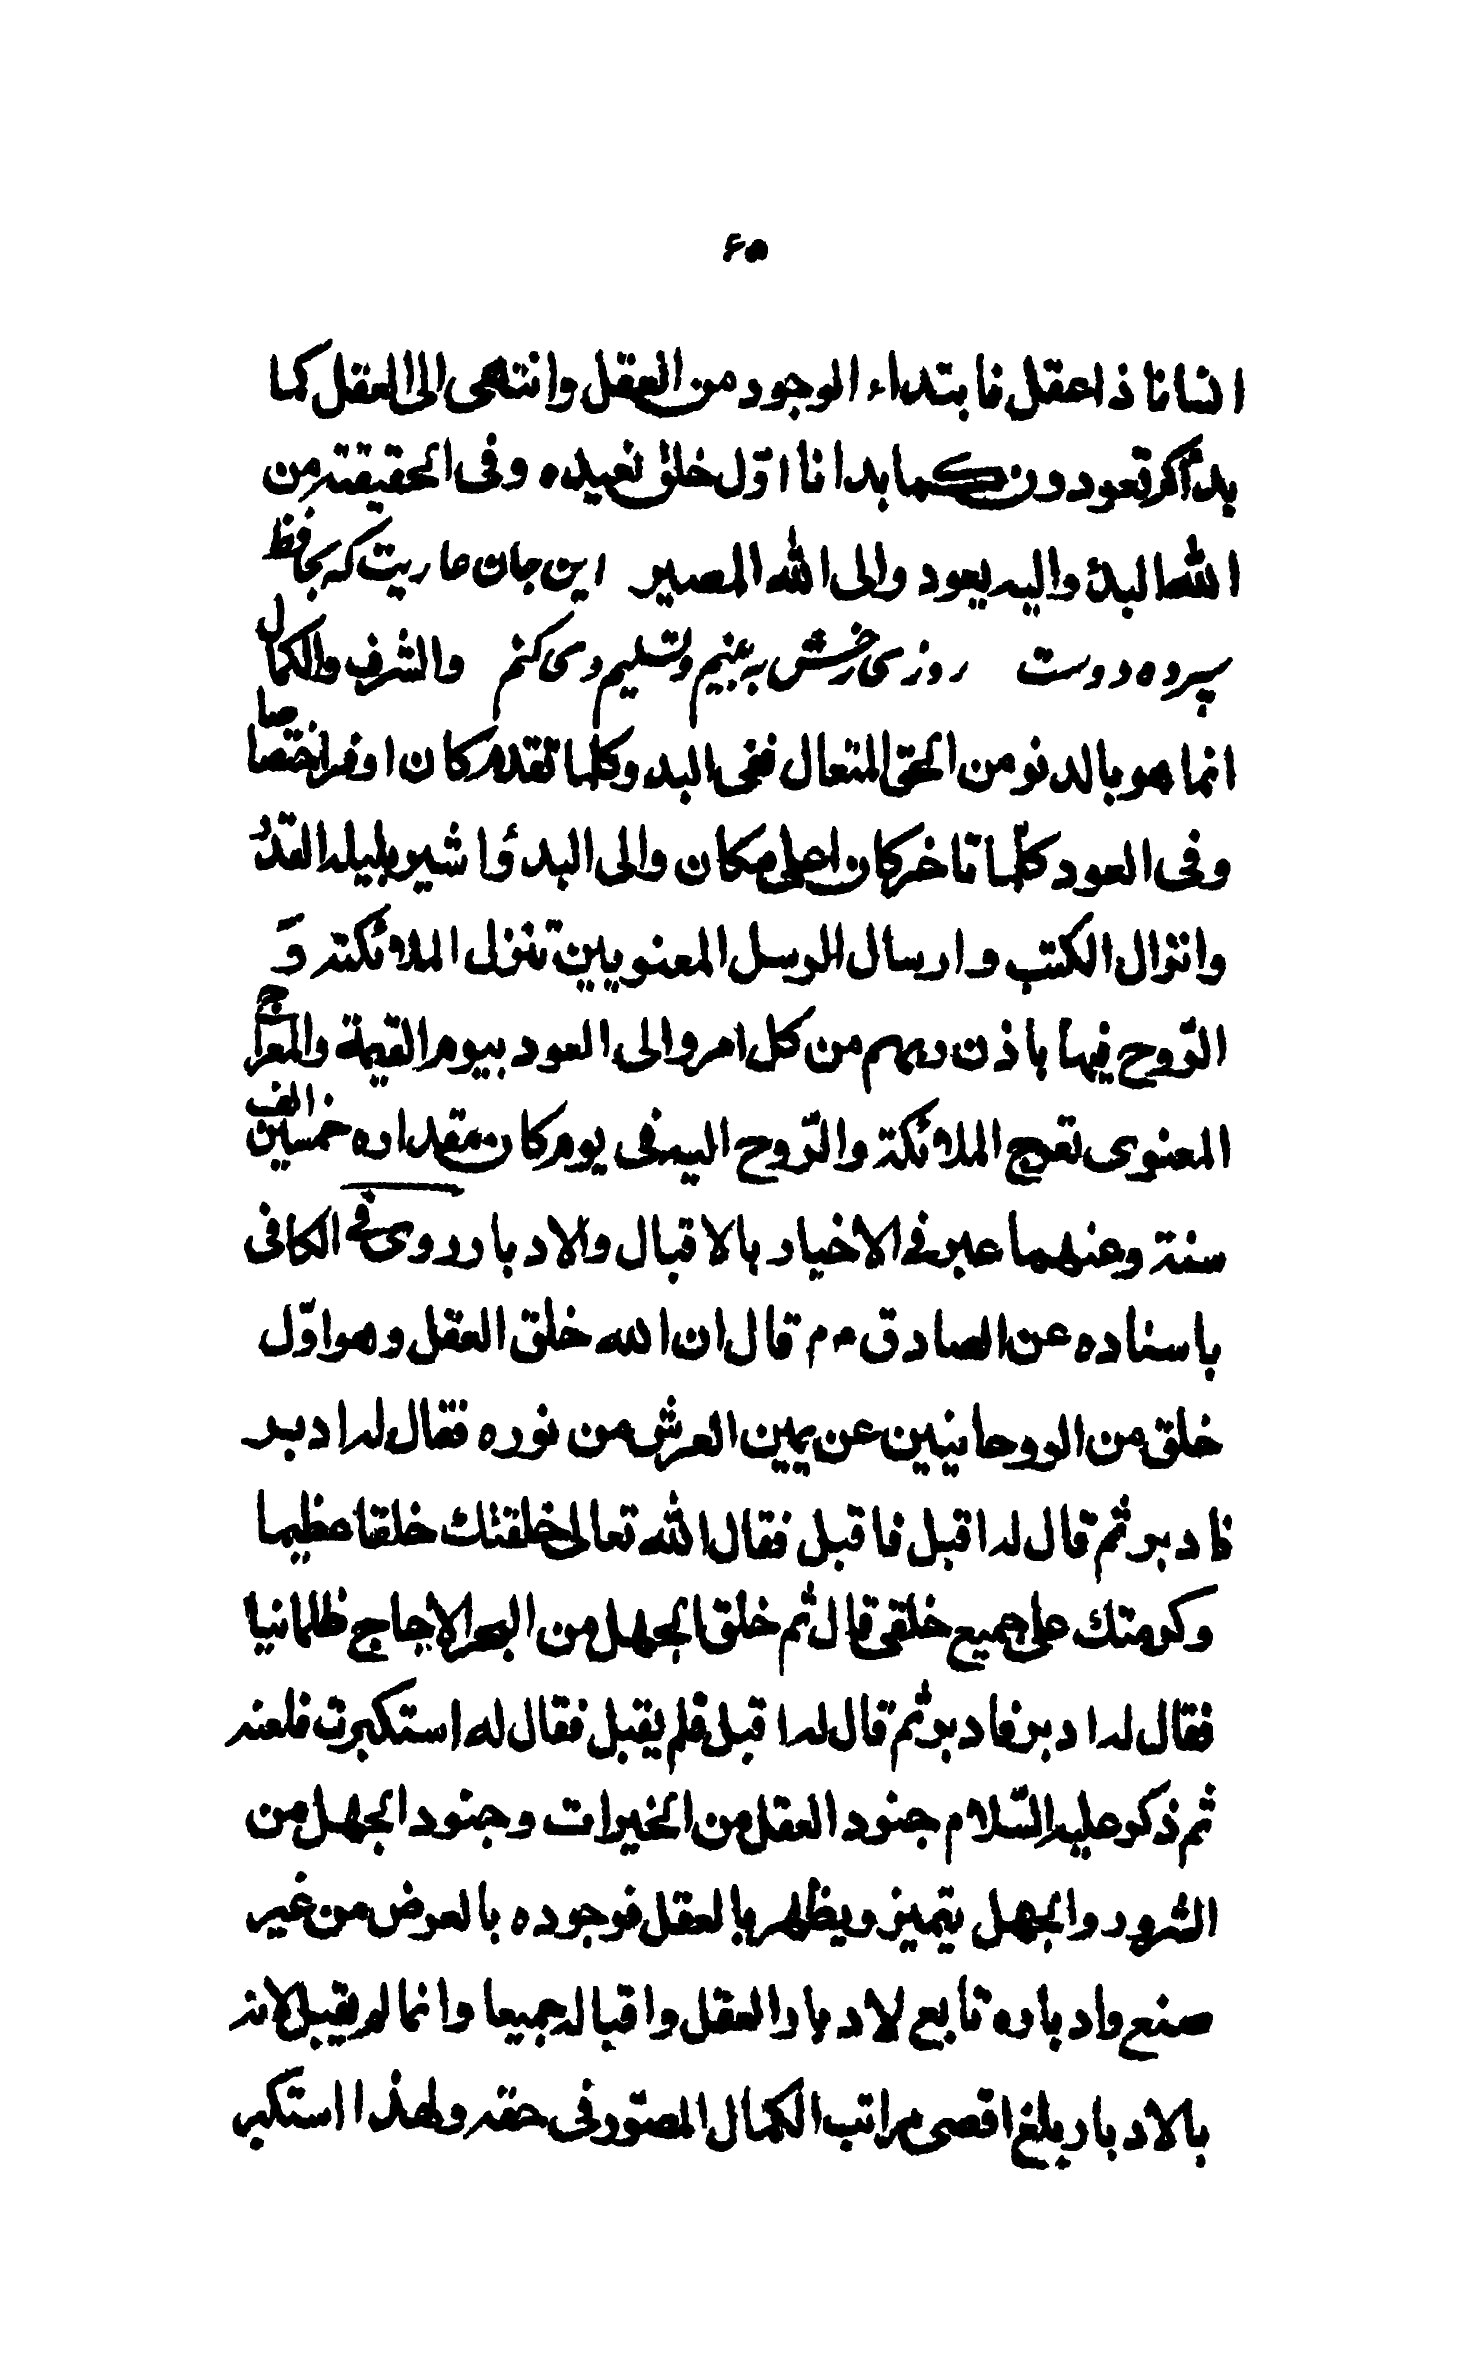 ۶۵
انسانا ذا عقل فابتداء الوجود من العقل وانتهى الى العقل كما
بدأكم تعودون كما بدانا اوّل خلق نعيده وفى الحقيقة من
الله البدؤ واليه يعود والى الله المصير این جان عاریت که بحافظ
سپرده دوست روزی رخش به بینم و تسلیم وی کنم والشرف والكمال
انما هو بالدنو من الحق المتعال ففى البدو كلما تقدم كان اوفر اختصاصا
وفى العود كلّما تاخر كان اعلى مكان والى البدؤ اشير بليلة القدر
وانزال الكتب وارسال الرسل المعنويين تنزل الملائكة وَ
الرّوح فيها باذن ربهم من كل امر والى العود بيوم القيمة والمعراج
المعنوى تعرج الملائكة والرّوح اليه فى يوم كان مقداره خمسين الف
سنة وعنهما عبر فى الاخبار بالاقبال والادبار روى فى الكافى
باسناده عن الصادق ۴م قال ان الله خلق العقل وهو اوّل
خلق من الروحانيين عن يمين العرش من نوره فقال له ادبر
فادبر ثم قال له اقبل فاقبل فقال الله تعالى خلقتك خلقا عظيما
وكرمتك على جميع خلقى قال ثم خلق الجهل من البحر الاجاج ظلمانيا
فقال له ادبر فادبر ثم قال له اقبل فلم يقبل فقال له استكبرت فلعنه
ثم ذكر عليه السّلام جنود العقل من الخيرات وجنود الجهل من
الشرور والجهل يتميز ويظهر بالعقل فوجوده بالعرض من غير
صنع وادباره تابع لادبار العقل واقباله جميعا وانما لم يقبل لانه
بالادبار بلغ اقصى مراتب الكمال المصّور فى حقه ولهذا استكبر